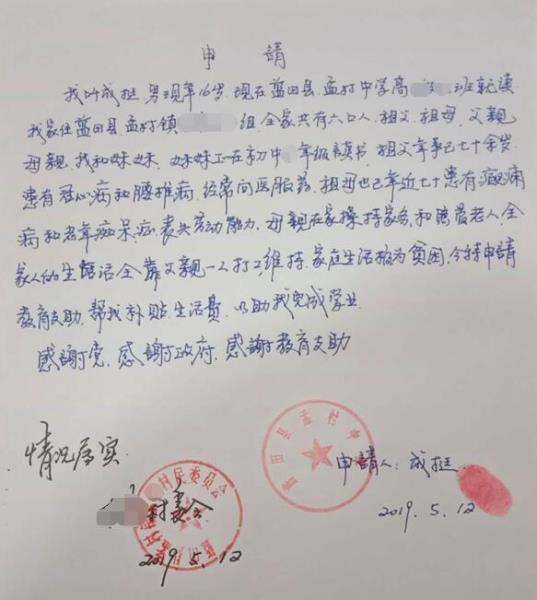 申 請
我叫成挺 男 现年16岁 现在蓝田县 孟村中学高 班就读
我家住蓝田县 孟村镇 组,全家共有六口人,祖父,祖母,父親
母親,我和妹妹,妹妹正在初中 年级读书,祖父年事已七十余岁
患有冠心病和腰椎病,经常向医服药,祖母也已年近七十患有癫痫
病和老年痴呆症,丧失劳动能力,母親在家操持家务,和
老人,全
家人的生活全靠父親一人打工维持,家庭生活极为贫困,今特申請
教育支助,帮我补贴生活费,以助我完成学业.
感謝党,感謝政府,感謝教育支助
情况属实
村委会
2019.5.12
村民委员会
蓝田县孟村中
申請人:成挺
2019.5.12